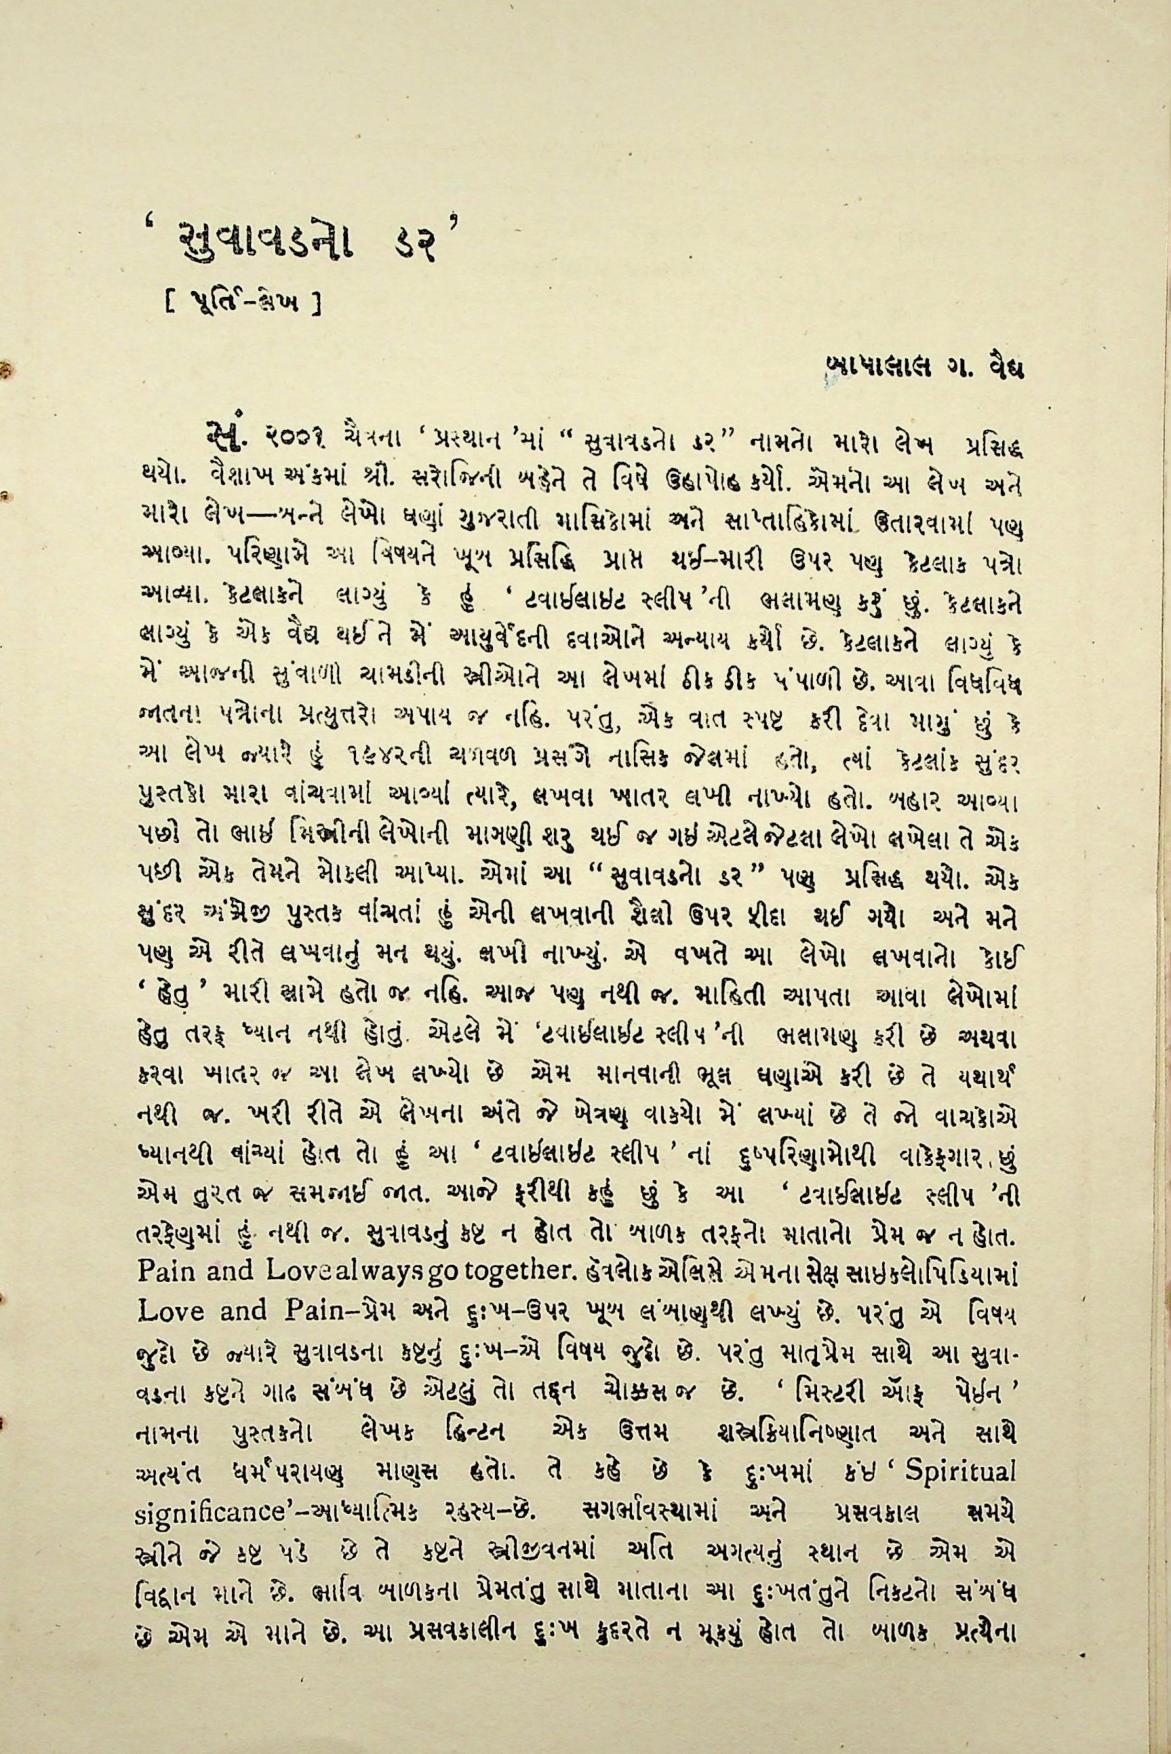 ‘ સુવાવડનો ડર ’
[ પૂર્તિ-લેખ ]
બાપાલાલ ગ. વૈદ્ય
સં. ૨૦૦૧ ચૈત્રના ‘ પ્રસ્થાન ’માં “ સુવાવડનો ડર ” નામનો મારો લેખ પ્રસિદ્ધ
થયો. વૈશાખ અંકમાં શ્રી. સરોજિની બહેને તે વિષે ઉહાપોહ કર્યો. એમનો આ લેખ અને
મારો લેખ—બન્ને લેખો ઘણાં ગુજરાતી માસિકોમાં અને સાપ્તાહિકોમાં ઉતારવામાં પણ
આવ્યા. પરિણામે આ વિષયને ખૂબ પ્રસિદ્ધિ પ્રાપ્ત થઈ–મારી ઉપર પણ કેટલાક પત્રો
આવ્યા. કેટલાકને લાગ્યું કે હું ‘ ટ્વાઇલાઇટ સ્લીપ ’ની ભલામણ કરું છું. કેટલાકને
લાગ્યું કે એક વૈદ્ય થઈ ને મેં આયુર્વેદની દવાઓને અન્યાય કર્યો છે. કેટલાકને લાગ્યું કે
મેં આજની સુંવાળી ચામડીની સ્ત્રીઓને આ લેખમાં ઠીક ઠીક પંપાળી છે. આવા વિધવિધ
જાતના પત્રોના પ્રત્યુત્તરો અપાય જ નહિ. પરંતુ, એક વાત સ્પષ્ટ કરી દેવા માગું છું કે
આ લેખ જ્યારે હું ૧૯૪૨ની ચળવળ પ્રસંગે નાસિક જેલમાં હતો, ત્યાં કેટલાંક સુંદર
પુસ્તકો મારા વાંચવામાં આવ્યાં ત્યારે, લખવા ખાતર લખી નાખ્યો હતો. બહાર આવ્યા
પછી તો ભાઈ મિસ્ત્રીની લેખોની માગણી શરુ થઈ જ ગઇ એટલે જેટલા લેખો લખેલા તે એક
પછી એક તેમને મોકલી આપ્યા. એમાં આ “સુવાવડનો ડર ” પણ પ્રસિદ્ધ થયો. એક
સુંદર અંગ્રેજી પુસ્તક વાંચતાં હું એની લખવાની શૈલી ઉપર ફીદા થઈ ગયો અને મને
પણ એ રીતે લખવાનું મન થયું. લખી નાખ્યું. એ વખતે આ લેખો લખવાનો કોઈ
‘ હેતુ ’ મારી સામે હતો જ નહિ. આજ પણ નથી જ. માહિતી આપતા આવા લેખોમાં
હેતુ તરફ ધ્યાન નથી હોતું. એટલે મેં ‘ટ્વાઇલાઇટ સ્લીપ ’ની ભલામણ કરી છે અથવા
કરવા ખાતર જ આ લેખ લખ્યો છે એમ માનવાની ભૂલ ઘણાએ કરી છે તે યથાર્થ
નથી જ. ખરી રીતે એ લેખના અંતે જે બેત્રણ વાક્યો મેં લખ્યાં છે તે જો વાચકોએ
ધ્યાનથી વાંચ્યાં હોત તો હું આ ‘ ટ્વાઇલાઇટ સ્લીપ ’ નાં દુષ્પરિણામોથી વાકેફગાર છું
એમ તુરત જ સમજાઈ જાત. આજે ફરીથી કહું છું કે આ ‘ ટ્વાઇલાઇટ સ્લીપ ’ની
તરફેણમાં હું નથી જ. સુવાવડનું કષ્ટ ન હોત તો બાળક તરફનો માતાનો પ્રેમ જ ન હોત.
Pain and Love always go together. હૅવલોક એલિસે એમના સેક્ષ સાઇકલોપિડિયામાં
Love and Pain–પ્રેમ અને દુઃખ–ઉપર ખૂબ લંબાણથી લખ્યું છે. પરંતુ એ વિષય
જુદો છે જ્યારે સુવાવડના કષ્ટનું દુઃખ–એ વિષય જુદો છે. પરંતુ માતૃપ્રેમ સાથે આ સુવા-
વડના કષ્ટને ગાઢ સંબંધ છે એટલું તો તદ્દન ચોક્કસ જ છે. ‘ મિસ્ટરી ઑફ પેઇન ’
નામના પુસ્તકનો લેખક હિન્ટન એક ઉત્તમ શસ્ત્રક્રિયાનિષ્ણાત અને સાથે
અત્યંત ધર્મપરાયણ માણસ હતો. તે કહે છે કે દુઃખમાં કંઇ ‘ Spiritual
significance’–આધ્યાત્મિક રહસ્ય–છે. સગર્ભાવસ્થામાં અને પ્રસવકાલ સમયે
સ્ત્રીને જે કષ્ટ પડે છે તે કષ્ટને સ્ત્રીજીવનમાં અતિ અગત્યનું સ્થાન છે એમ એ
વિદ્વાન માને છે. ભાવિ બાળકના પ્રેમતંતુ સાથે માતાના આ દુઃખતંતુને નિકટનો સંબંધ
છે એમ એ માને છે. આ પ્રસવકાલીન દુઃખ કુદરતે ન મૂકયું હોત તો બાળક પ્રત્યેના